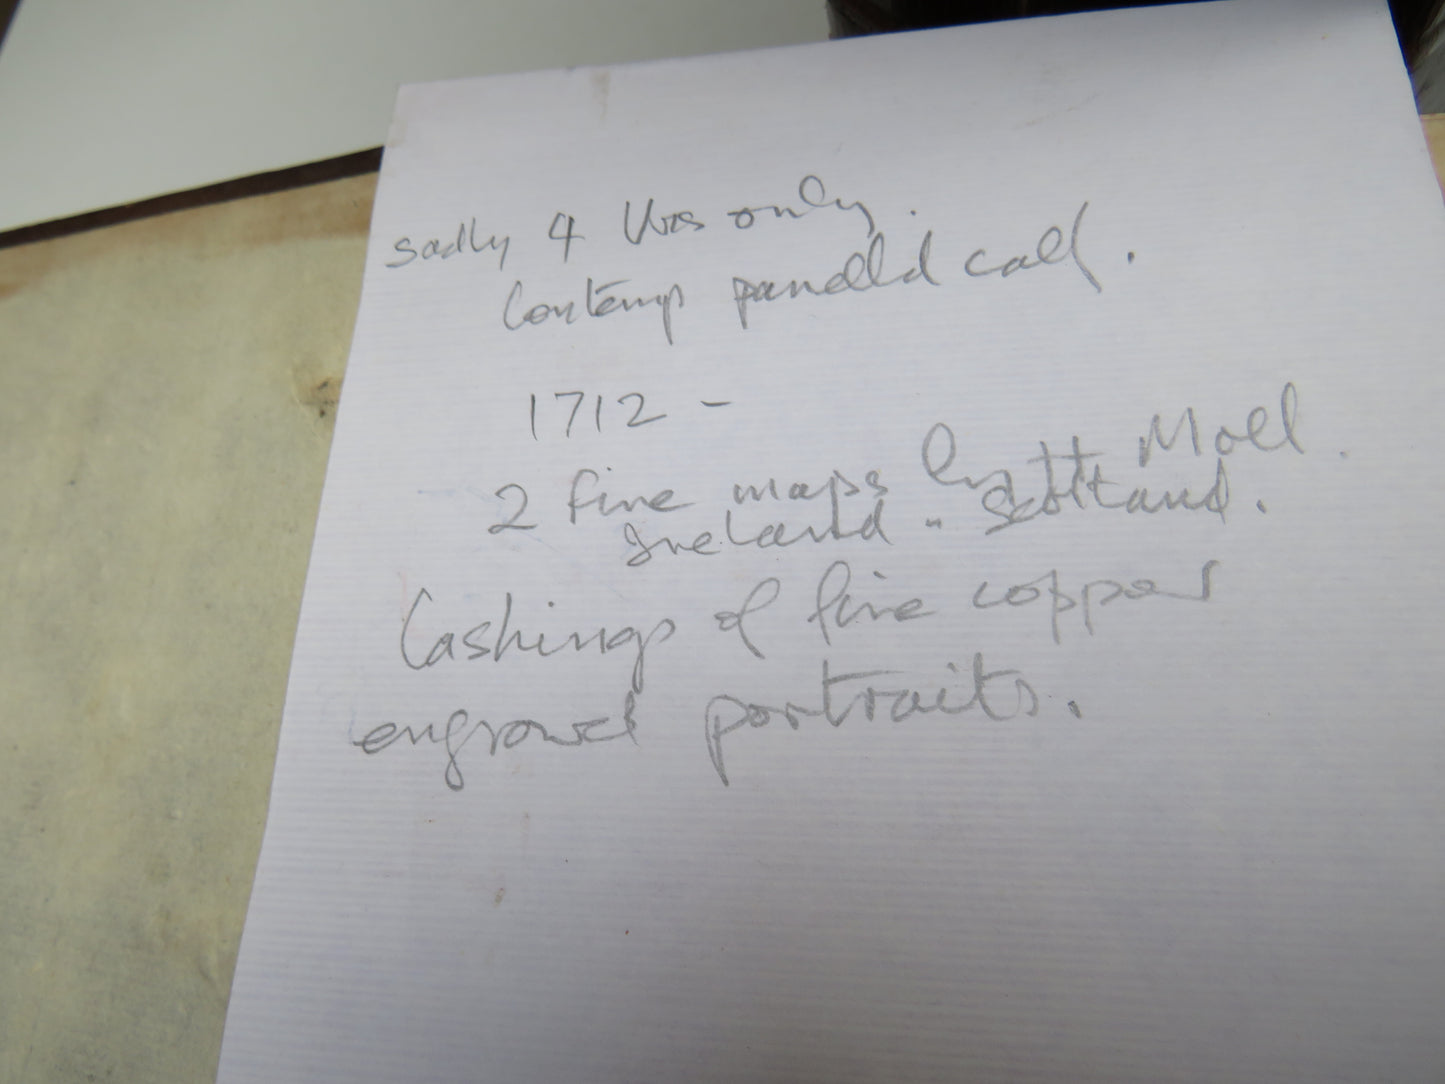 sadly 4 Vos only.
Contemp panelld calf.
1712 -
2 fine maps by H Moll.
Ireland " Scotland.
Lashings of fine copper
engraved portraits.